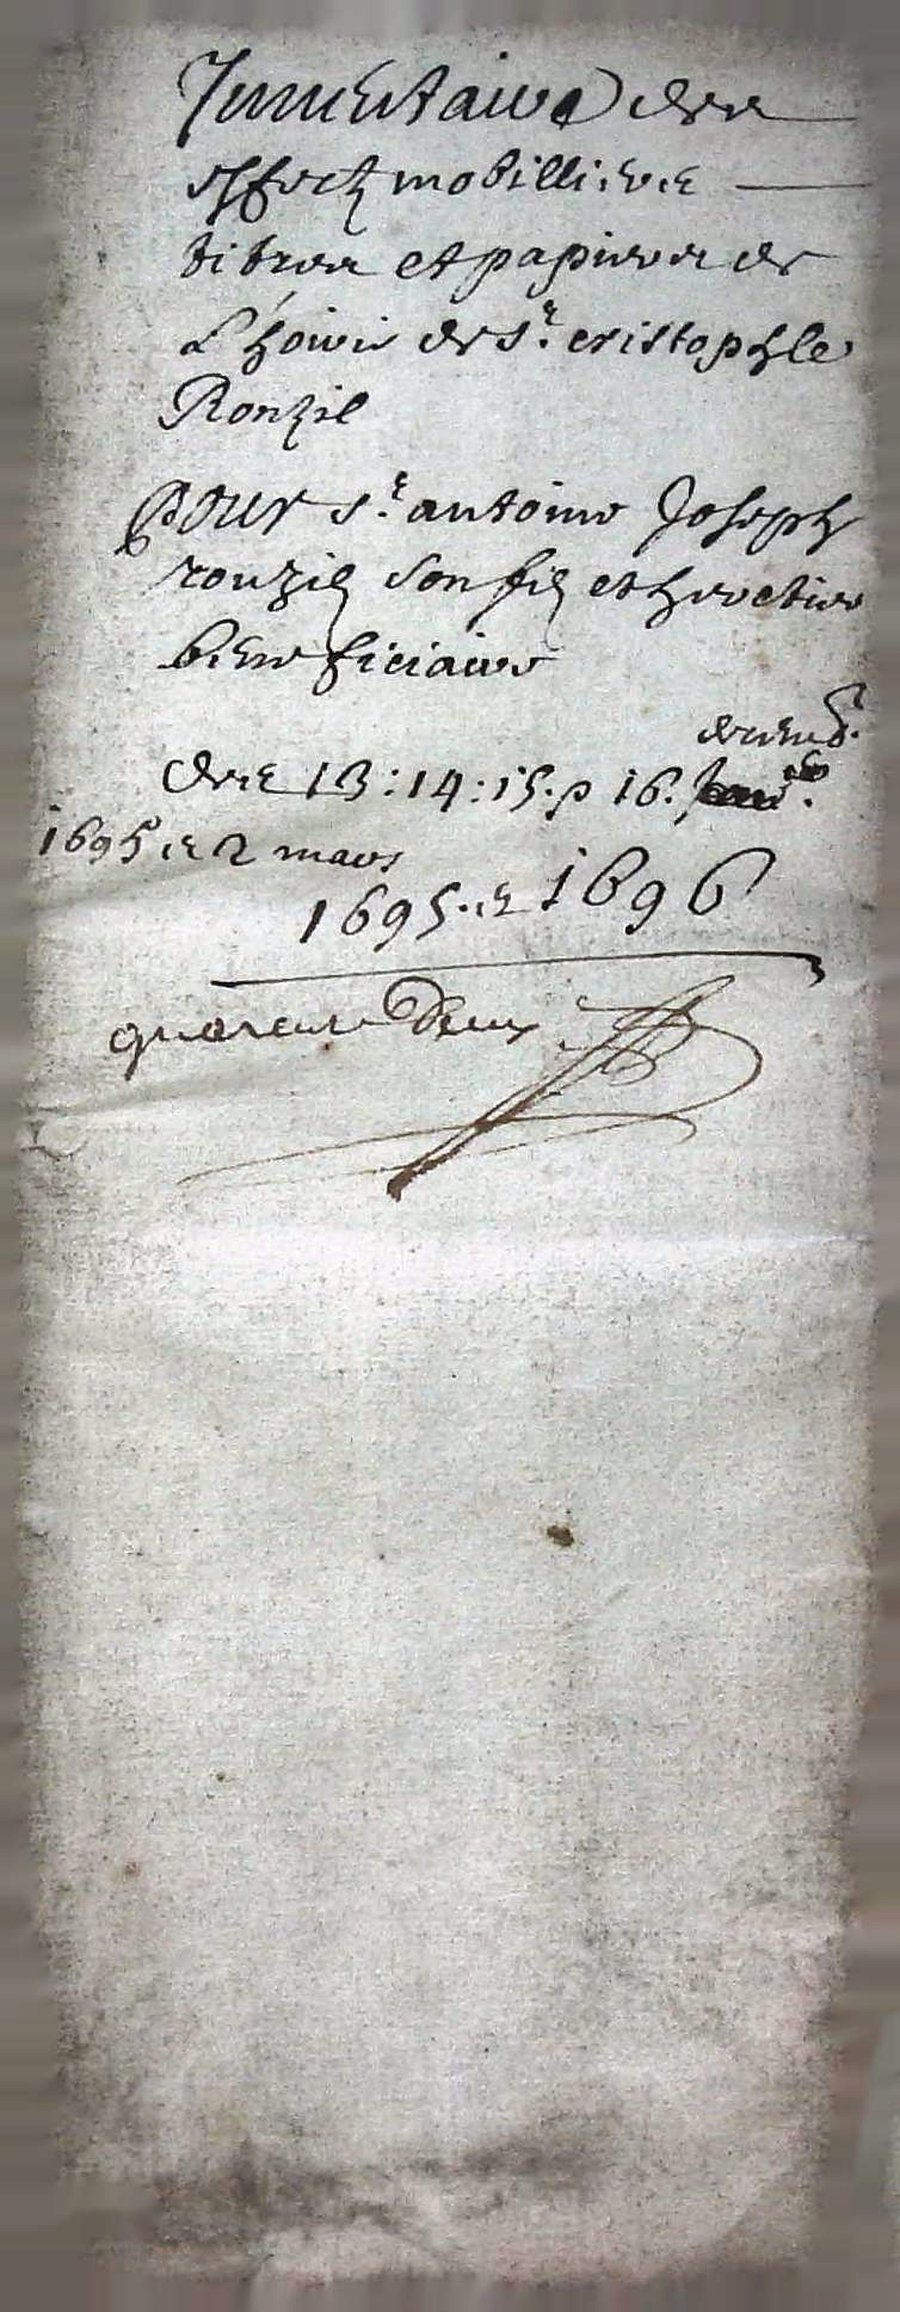 Inventaire des
effectz mobilliers
titres et papiers de
L'hoirie de Sr. cristophle
Ronzil
Pour Sr. antoine Joseph
ronzil son filz et heretier
beneficiaire
decemb.
des 13: 14: 15. & 16.
1695 et 2 mars
1695. et 1696
quarante Deux